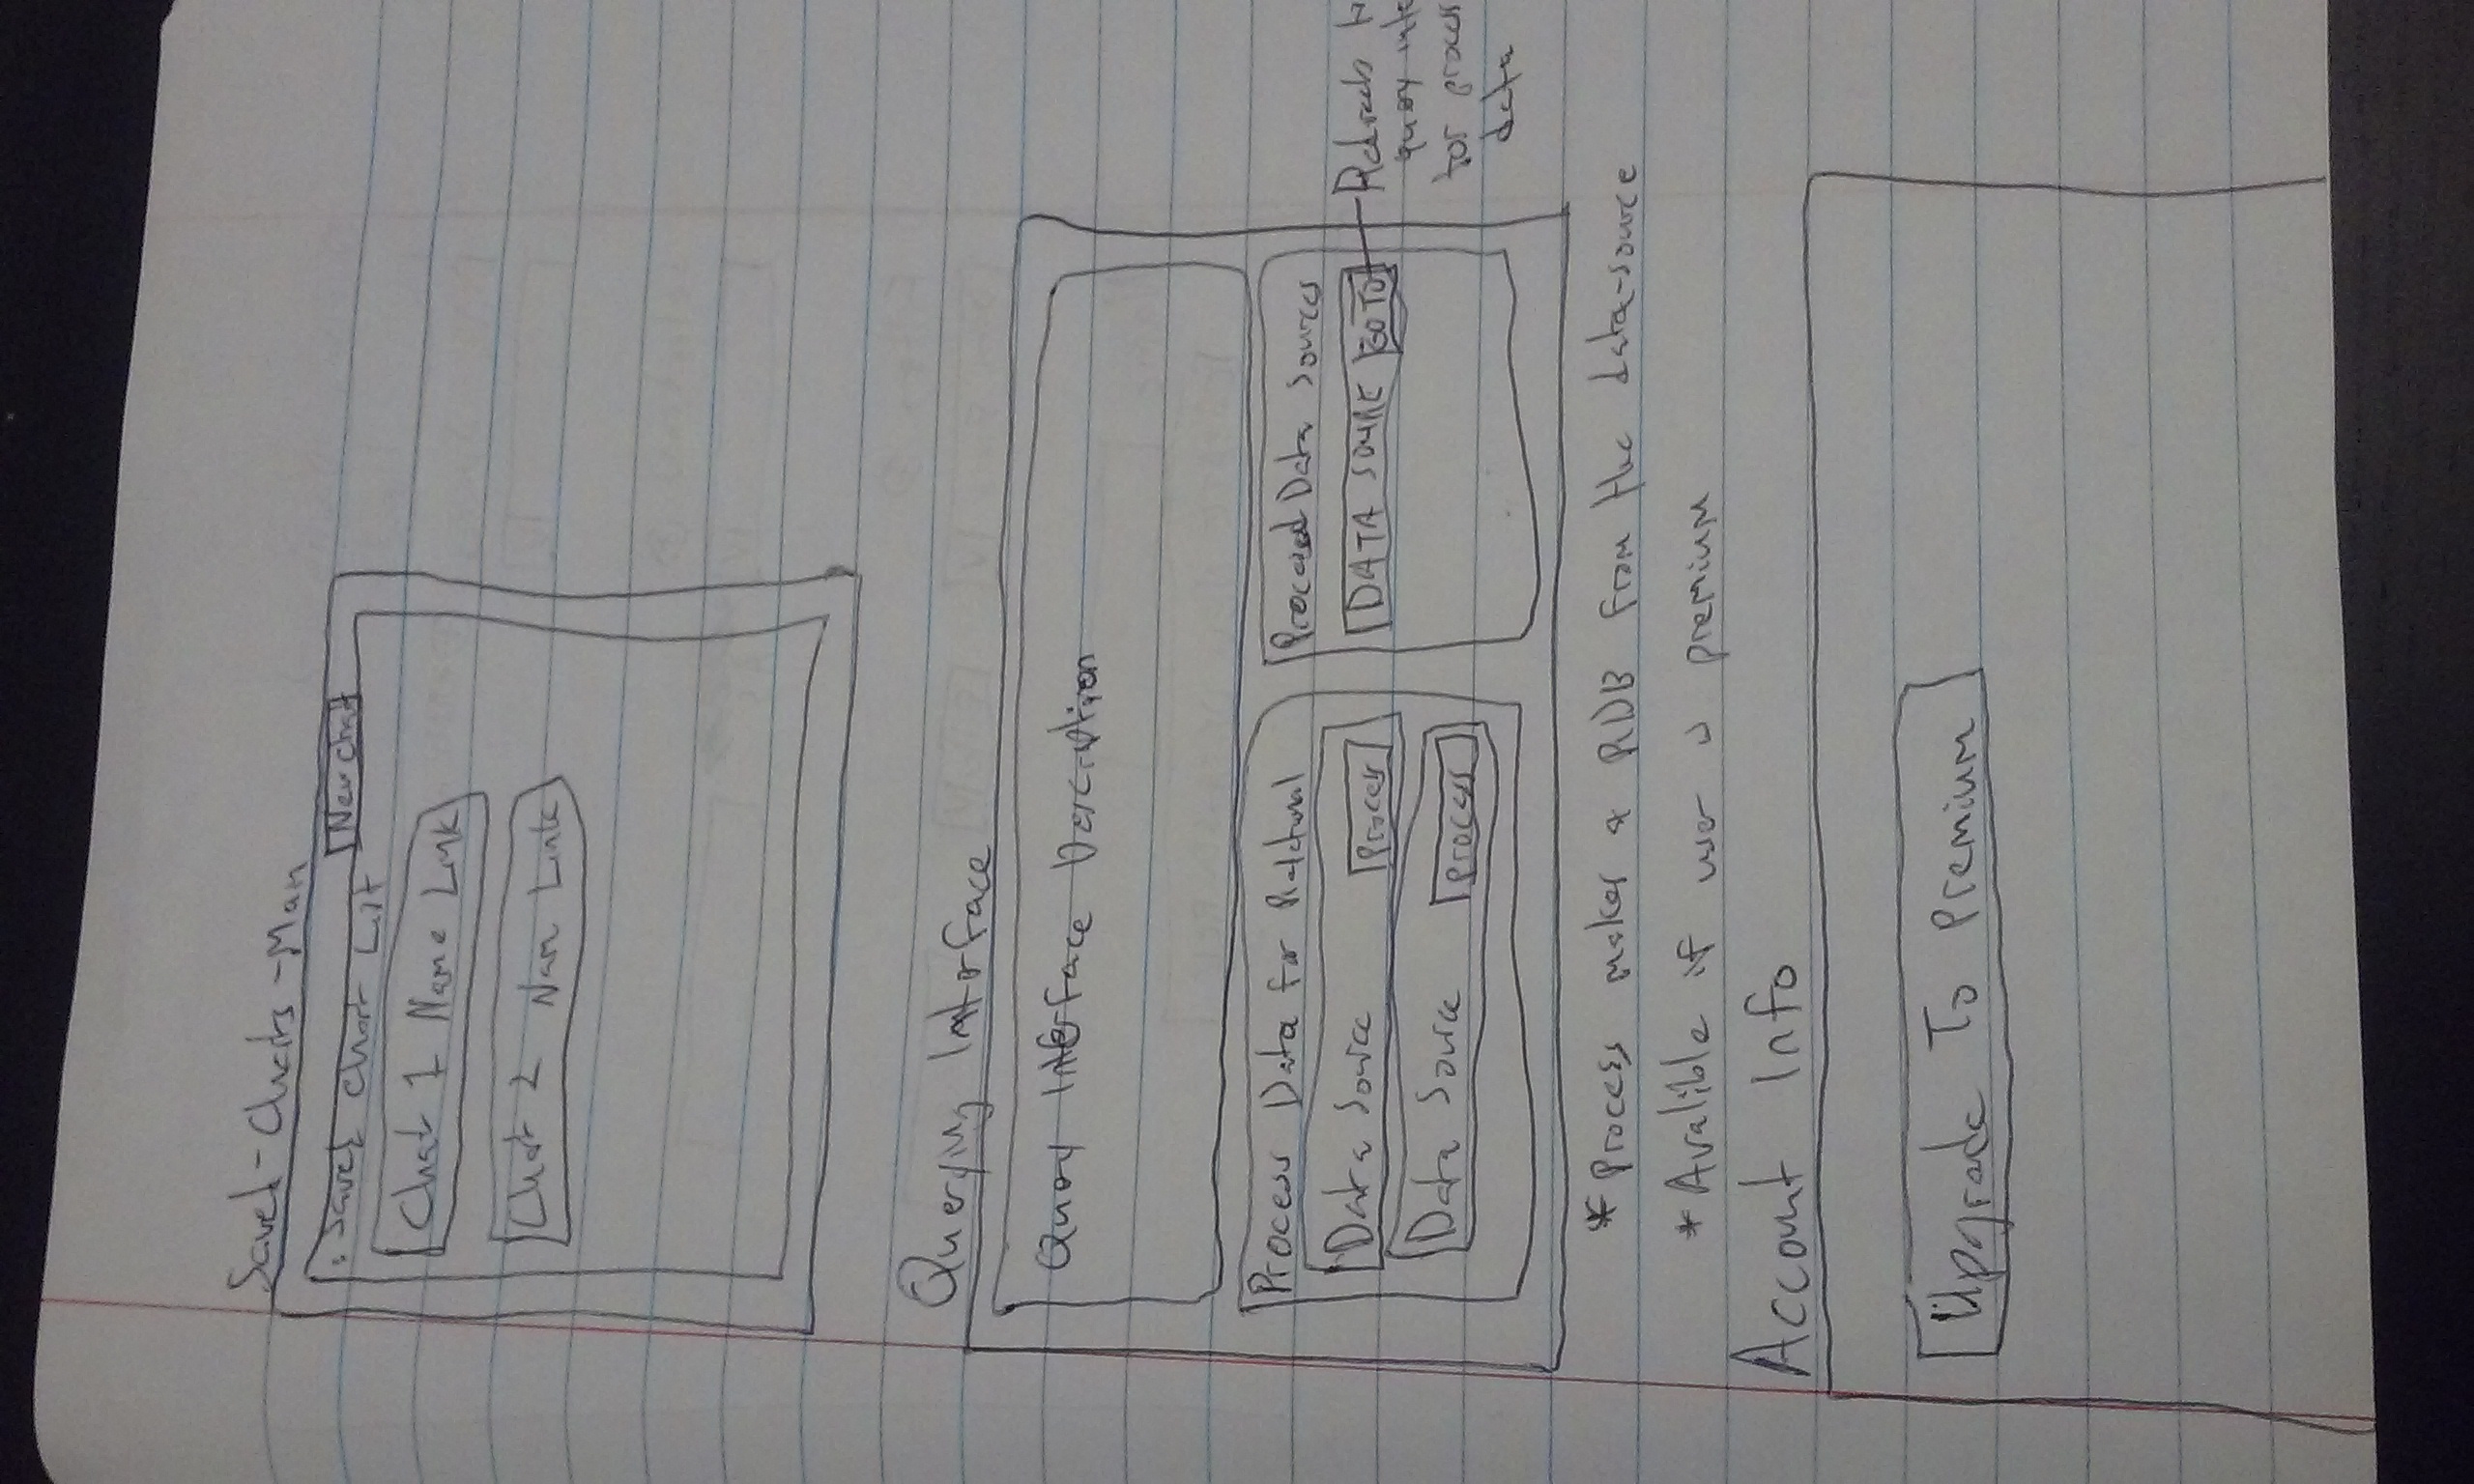 Saved-Chats-Man
New Chat
: Saved Chat List
Chat 1 Name Link
Chat 2 Nam Link
Querying Interface
Query Interface Description
Process Data for Relational
Data Source Process
Data Source Process
Processed Data Sources
DATA SOURCE GO TO
query
for
data
* Process makes a RDB from the data-source
* Availible if user is premium
Account Info
Upgrade To Premium